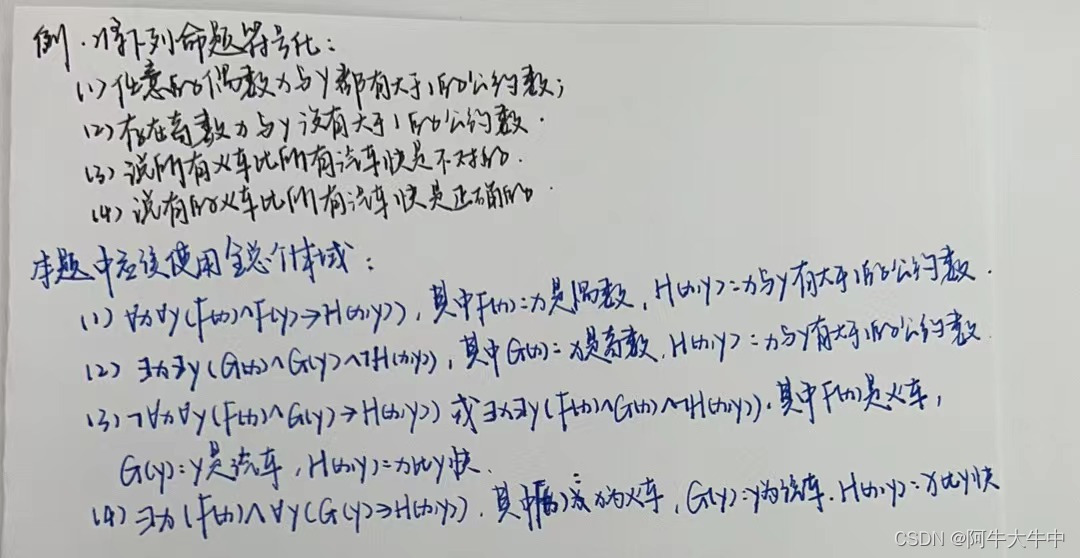 例.将下列命题符号化:
(1)任意的偶数x与y都有大于1的公约数;
(2)存在奇数x与y没有大于1的公约数.
(3)说所有火车比所有汽车快是不对的.
(4)说有的火车比所有汽车快是正确的.
本题中应该使用全总个体域:
(1) ∀x∀y(F(x)∧F(y)→H(x,y)),其中F(x)=x是偶数,H(x,y)=x与y有大于1的公约数.
(2) ∃x∃y(G(x)∧G(y)∧¬H(x,y)),其中G(x)=x是奇数.H(x,y)=x与y有大于1的公约数.
(3) ¬∀x∀y(F(x)∧G(y)→H(x,y))或∃x∃y(F(x)∧G(x)∧¬H(x,y)).其中F(x)是火车,
G(y):y是汽车,H(x,y)=x比y快.
(4) ∃x(F(x)∧∀y(G(y)→H(x,y)).其中 x为火车,G(y):y为汽车.H(x,y)=x比y快
CSDN @阿牛大牛中